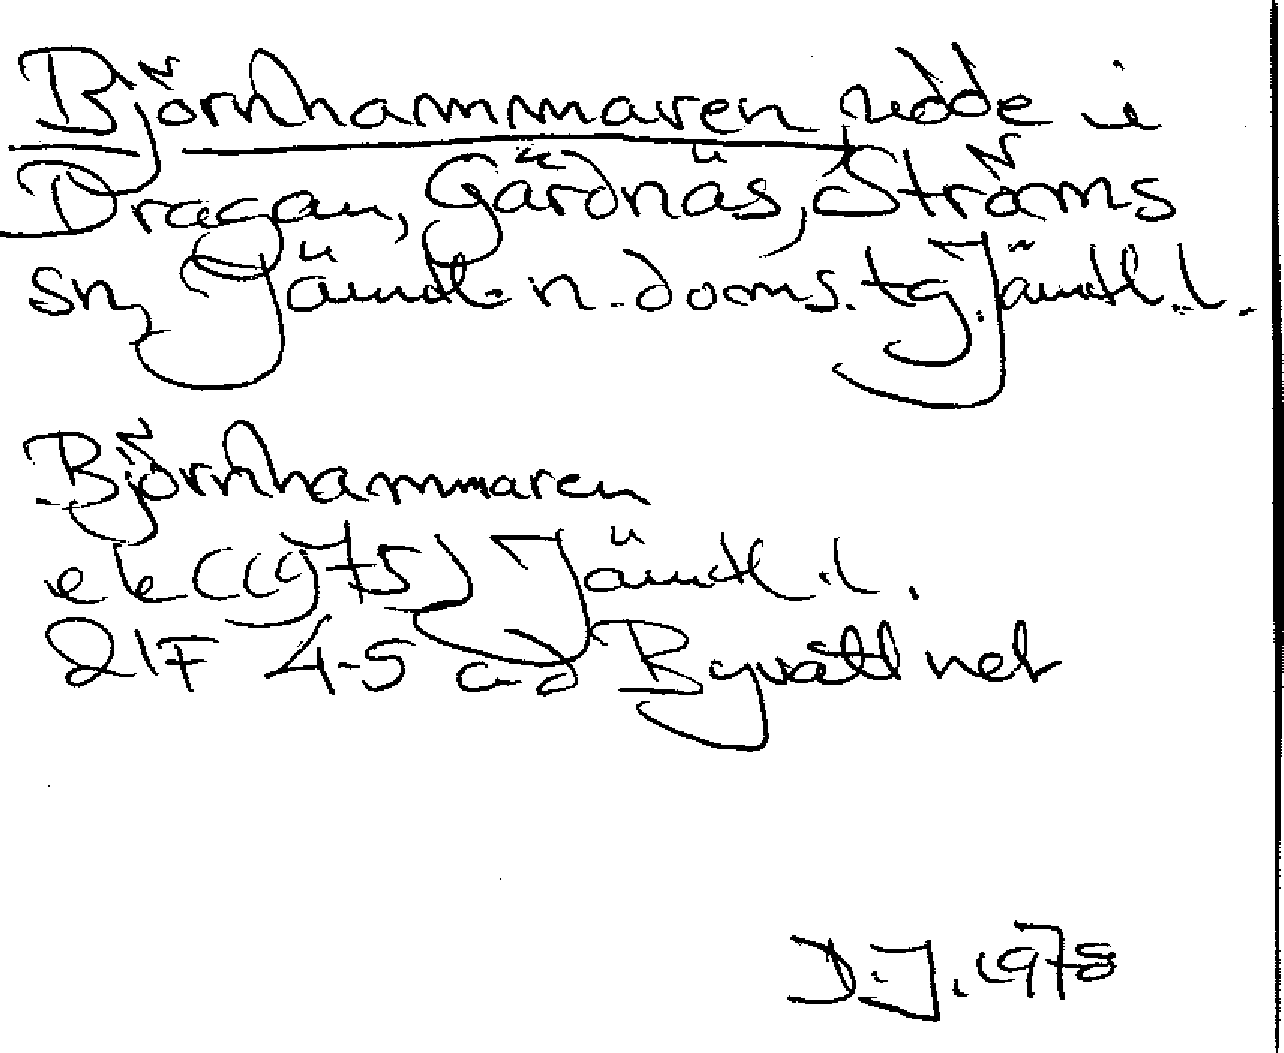 Björnhammaren udde i
Dragan, Gärdnäs, Ströms
sn, Jämtl. n. doms. tg. Jämtl. l.
Björnhammaren
ek (1975) Jämtl. l.
21F 4-5 a-d Bågvattnet
D.J. 1978